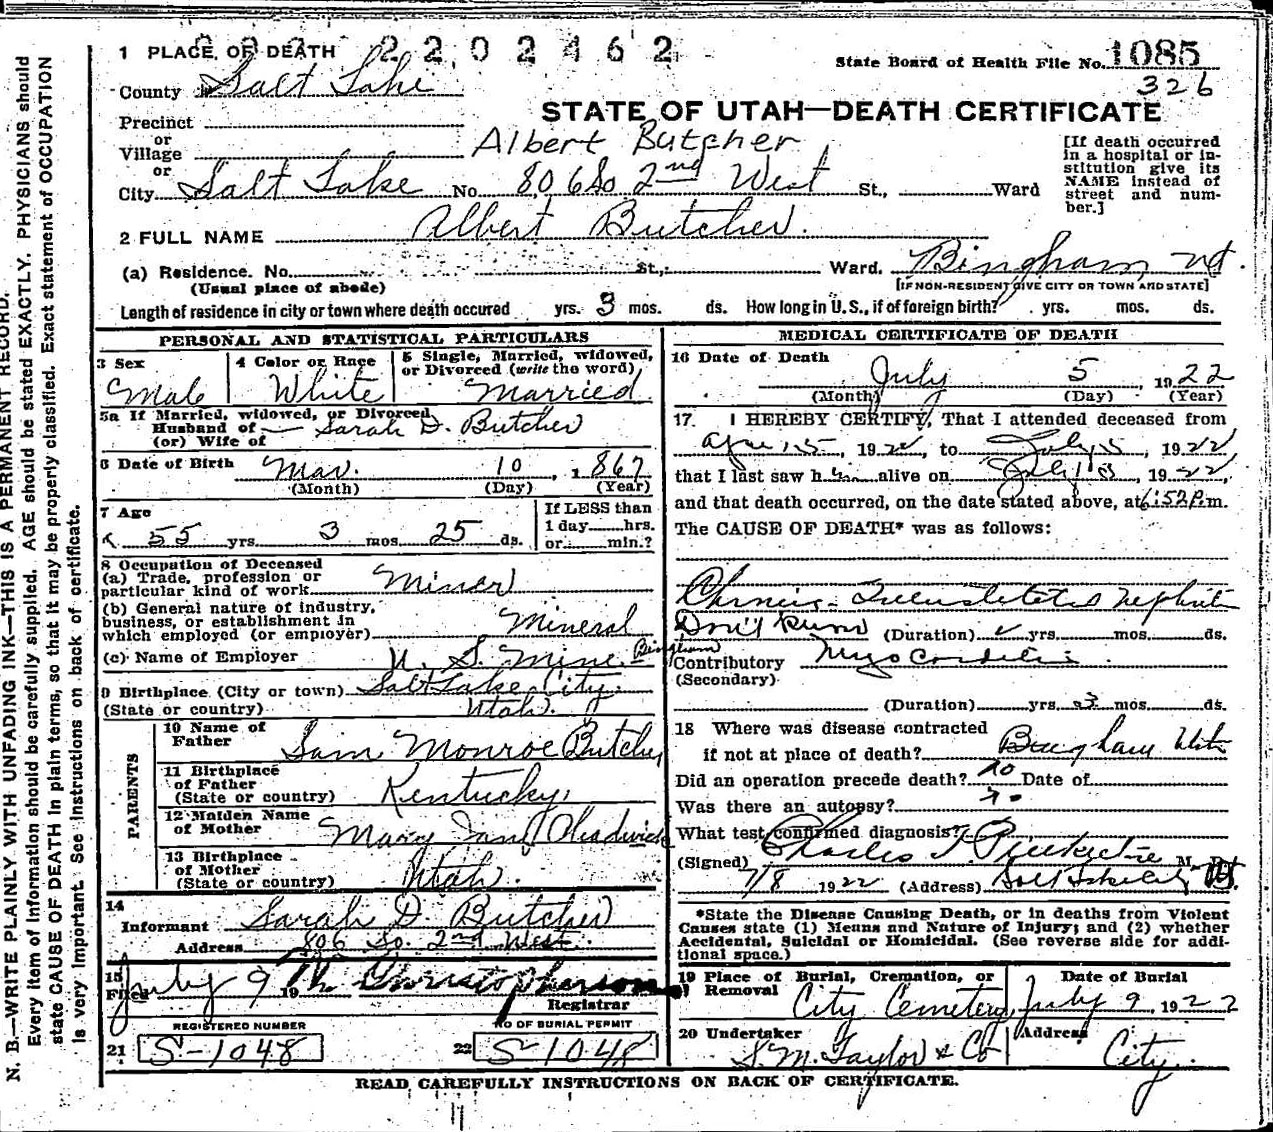 N. B.—WRITE PLAINLY WITH UNFADING INK—THIS IS A PERMANENT RECORD.
Every item of information should be carefully supplied. AGE should be stated EXACTLY. PHYSICIANS should
state CAUSE OF DEATH in plain terms, so that it may be properly classified. Exact statement of OCCUPATION
is very important. See instructions on back of certificate.
2202462
State Board of Health File No. 1085
326
1 PLACE OF DEATH
County Salt Lake
STATE OF UTAH—DEATH CERTIFICATE
Precinct
or
Village
Albert Butcher
or
City Salt Lake No 806 So 2nd West St., Ward
[If death occurred
in a hospital or in-
stitution give its
NAME instead of
street and num-
ber.]
2 FULL NAME Albert Butcher.
(a) Residence. No. St., Ward. Bingham
(Usual place of abode) [IF NON-RESIDENT GIVE CITY OR TOWN AND STATE]
Length of residence in city or town where death occured yrs. 3 mos. ds. How long in U. S., if of foreign birth? yrs. mos. ds.
PERSONAL AND STATISTICAL PARTICULARS
3 Sex
Male
4 Color or Race
White
5 Single, Married, widowed,
or Divorced (write the word)
Married
5a If Married, widowed, or Divorced
Husband of — Sarah D. Butcher
(or) Wife of
6 Date of Birth Mar. 10, 1867
(Month) (Day) (Year)
7 Age
55 yrs. 3 mos. 25 ds.
If LESS than
1 day hrs.
or min.?
8 Occupation of Deceased
(a) Trade, profession or
particular kind of work Miner
(b) General nature of industry,
business, or establishment in
which employed (or employer) Mineral
(c) Name of Employer U. S. Mine. Bingham
9 Birthplace (City or town) Salt Lake City.
(State or country) Utah.
PARENTS
10 Name of
Father Sam Monroe Butcher
11 Birthplace
of Father
(State or country) Kentucky.
12 Maiden Name
of Mother Mary Jane Chadwick
13 Birthplace
of Mother
(State or country) Utah.
14
Informant Sarah D. Butcher
Address 806 So. 2nd West.
15
Filed July 9 19
Registrar
REGISTERED NUMBER
21 S-1048
NO OF BURIAL PERMIT
22 S-1048
MEDICAL CERTIFICATE OF DEATH
16 Date of Death
July 5, 1922
(Month) (Day) (Year)
17. I HEREBY CERTIFY, That I attended deceased from
1922, to July 5, 1922
that I last saw h alive on July, 1922,
and that death occurred, on the date stated above, at 6:52 P.m.
The CAUSE OF DEATH* was as follows:
Chronic Interstitial Nephritis
Don't know (Duration) yrs. mos. ds.
Contributory Myocarditis
(Secondary)
(Duration) yrs. mos. ds.
18 Where was disease contracted
if not at place of death? Bingham Utah
Did an operation precede death? no Date of
Was there an autopsy?
What test confirmed diagnosis?
(Signed) Charles M. D.
7/8 1922 (Address) Salt Lake City
*State the Disease Causing Death, or in deaths from Violent
Causes state (1) Means and Nature of Injury; and (2) whether
Accidental, Suicidal or Homicidal. (See reverse side for addi-
tional space.)
19 Place of Burial, Cremation, or
Removal
City Cemetery
Date of Burial
July 9, 1922
20 Undertaker
S. M. Taylor & Co
Address
City.
READ CAREFULLY INSTRUCTIONS ON BACK OF CERTIFICATE.